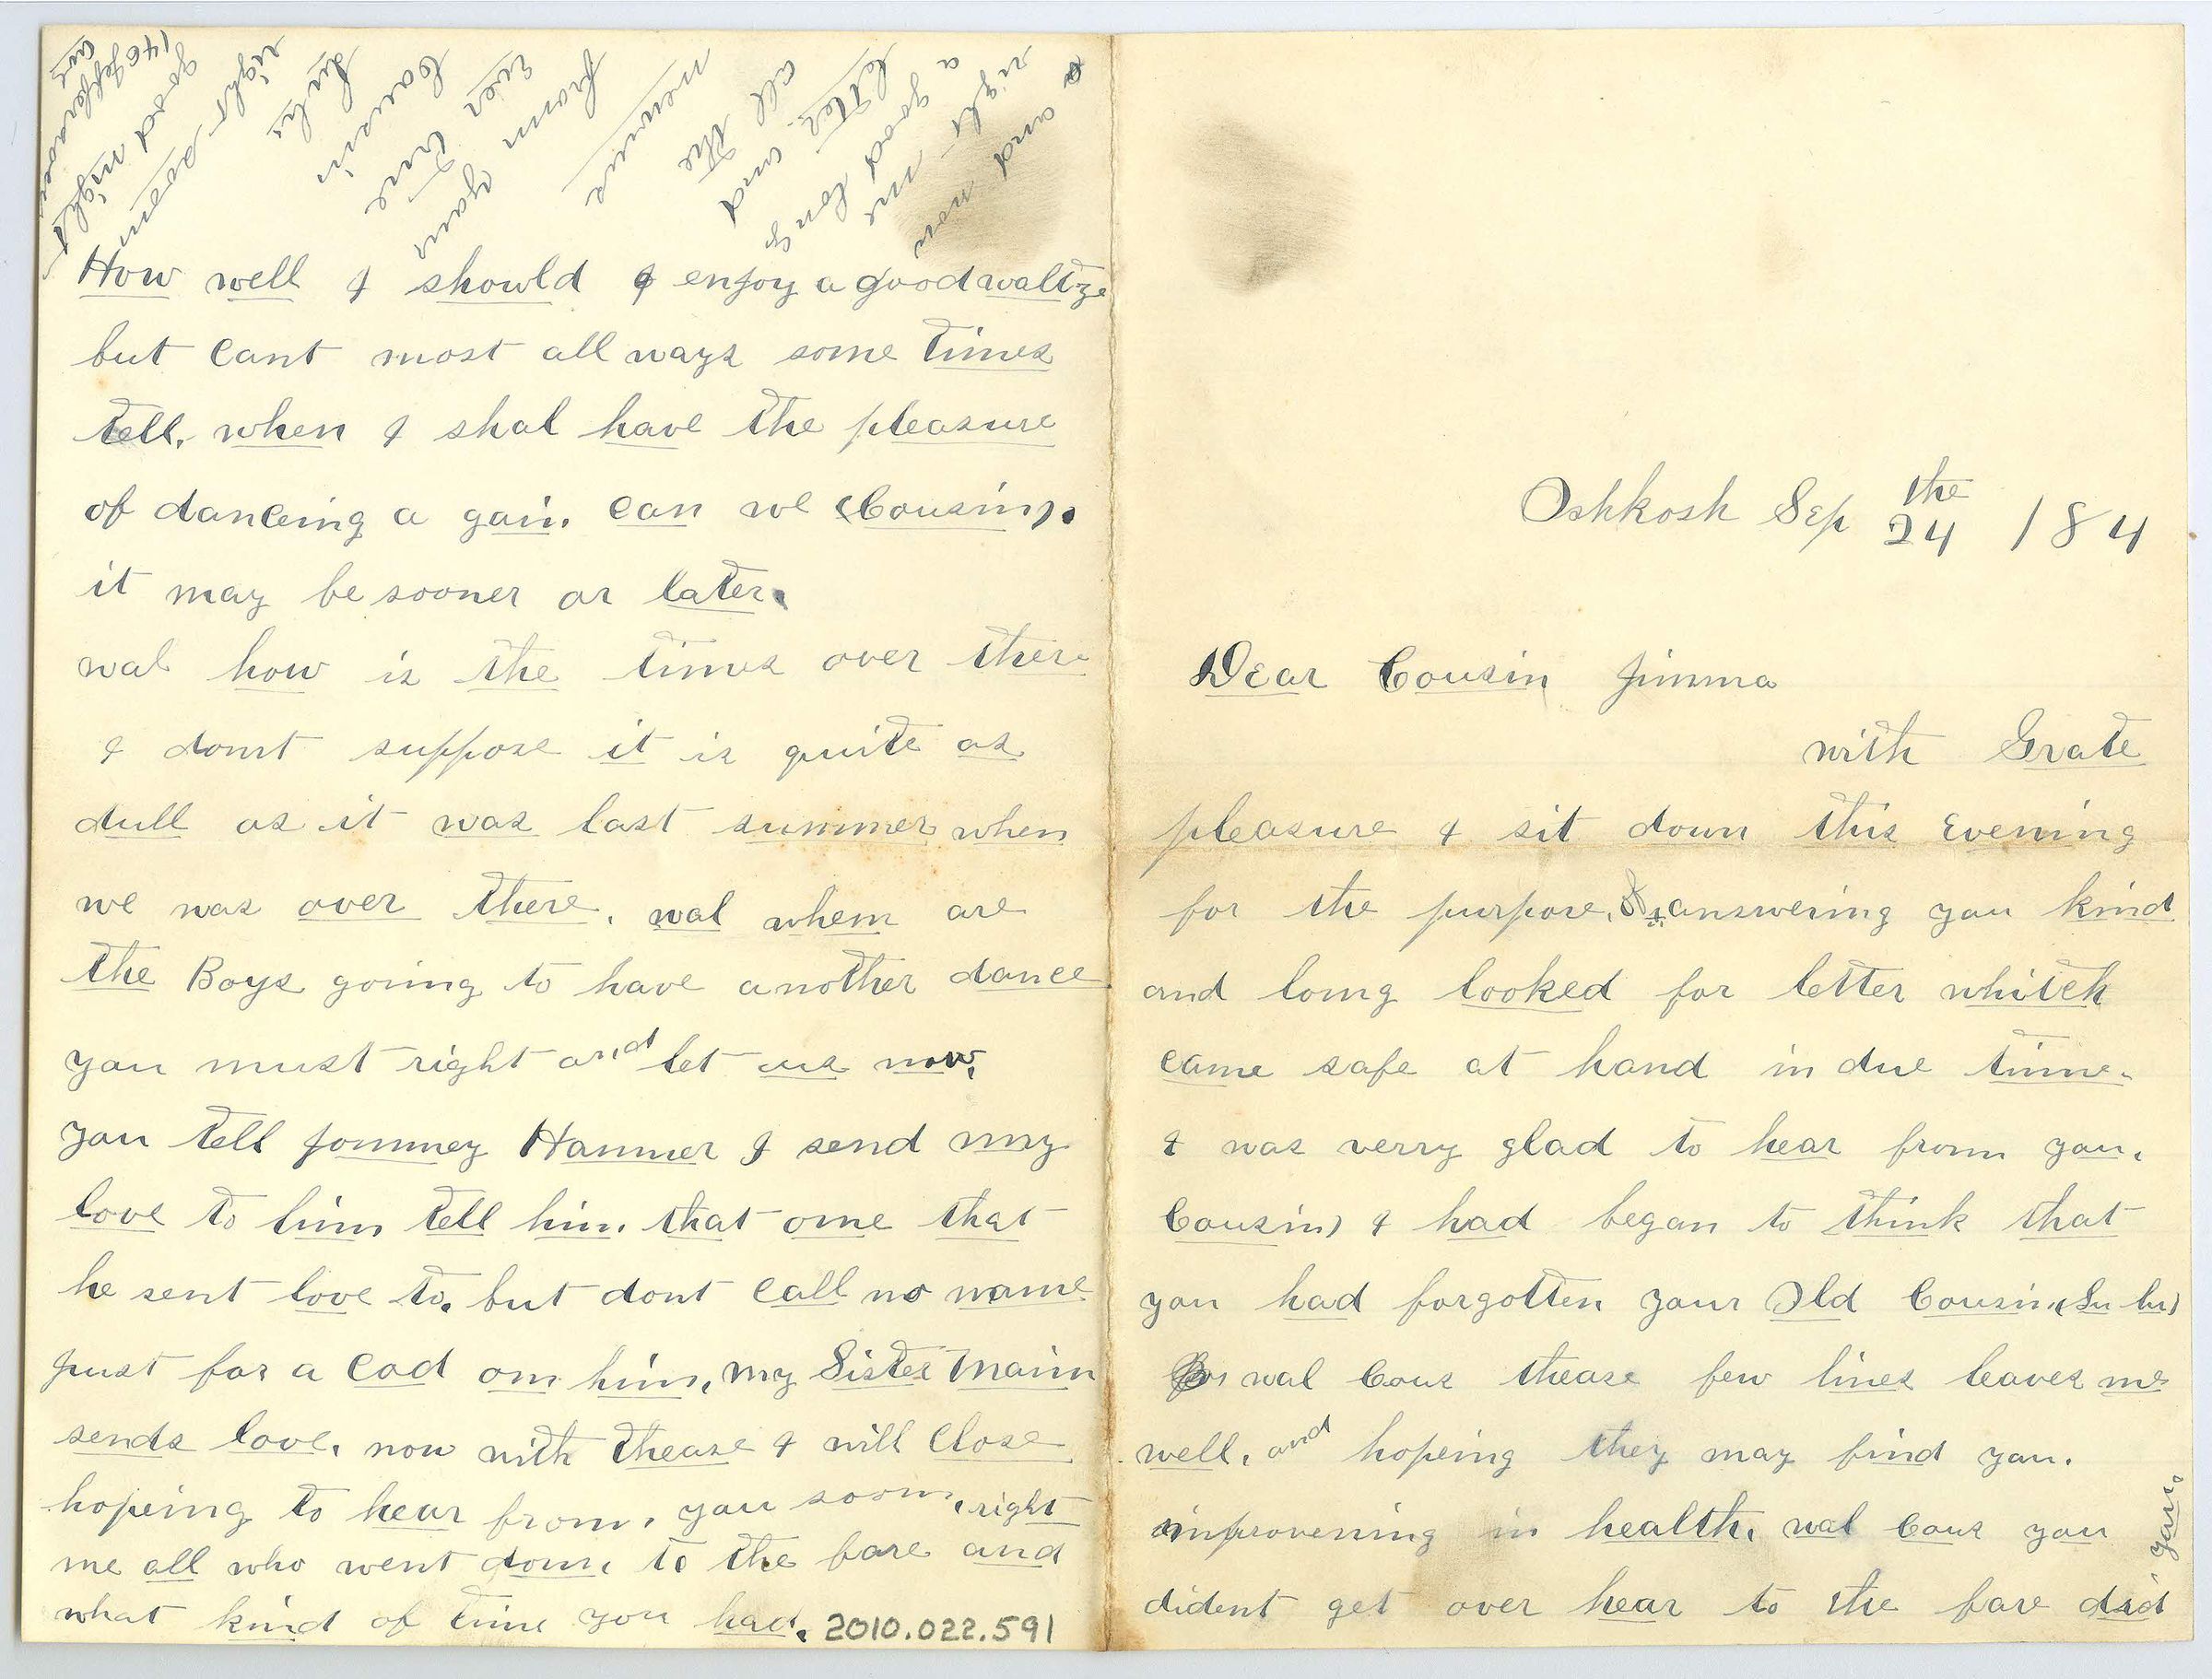 Oshkosh Sep the 24 184
Dear Cousin Jimma
with Grate
pleasure I sit down this evening
for the purpose, answering you kind
and long looked for letter whitch
came safe at hand in due time.
I was verry glad to hear from you.
Cousin) I had began to think that
you had forgotten your Old Cousin (Lu lu)
wal Cous thease few lines leaves me
well, and hopeing they may find you.
improvening in health. wal Cous you
dident get over hear to the fare did
you.
How well I should I enjoy a good waltze
but cant most all ways some times
tell. when I shal have the pleasure
of danceing a gain. can we (Cousin).
it may be sooner or later.
wal how is the times over there
I dont suppose it is quite as
dull as it was last summer when
we was over there. wal when are
the Boys going to have another dance
you must right and let us now.
you tell Jommey Hammer I send my
love to him tell him that one that
he sent love to. but dont call no name
just for a Cod on him. my Sister Maim
sends love. now with thease I will Close
hopeing to hear from. you soon. right
me all who went down to the fare and
what kind of time you had.
and now
right me
a good long
letter and
all the
newse
from your
ever true
Cousin
Lulu
right soon
good night
140 Jefferson
ave
2010.022.591